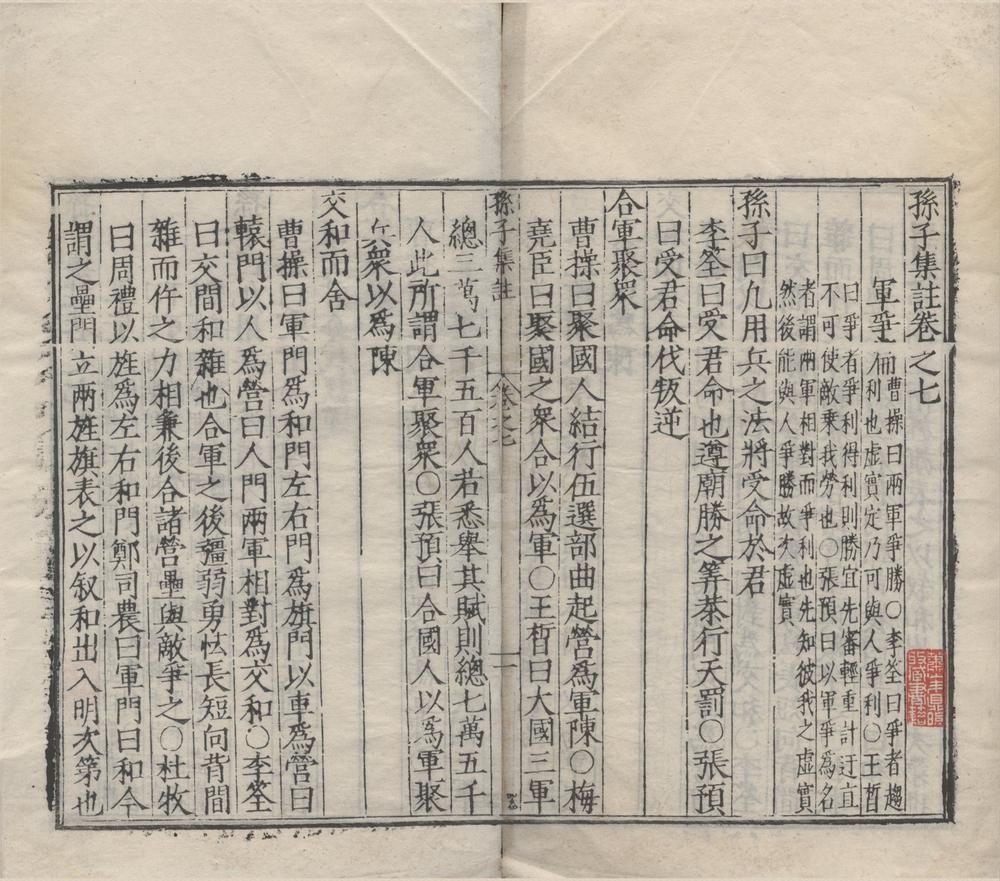 孫子集註卷之七
軍爭
曹操曰兩軍爭勝○李筌曰爭者趨
利也虛實定乃可與人爭利○王晳
曰爭者爭利得利則勝宜先審輕重計迂直
不可使敵乘我勞也○張預曰以軍爭爲名
者謂兩軍相對而爭利也先知彼我之虛實
然後能與人爭勝故次虛實
孫子曰凡用兵之法將受命於君
李筌曰受君命也遵廟勝之筭恭行天罰○張預
曰受君命伐叛逆
合軍聚衆
曹操曰聚國人結行伍選部曲起營爲軍陳○梅
堯臣曰聚國之衆合以爲軍○王晳曰大國三軍
孫子集註
卷之七
一
總三萬七千五百人若悉舉其賦則總七萬五千
人此所謂合軍聚衆○張預曰合國人以爲軍聚
兵衆以爲陳
交和而舍
曹操曰軍門爲和門左右門爲旗門以車爲營曰
轅門以人爲營曰人門兩軍相對爲交和○李筌
曰交間和雜也合軍之後彊弱勇怯長短向背間
雜而仵之力相兼後合諸營壘與敵爭之○杜牧
曰周禮以旌爲左右和門鄭司農曰軍門曰和今
謂之壘門立兩旌旗表之以叙和出入明次第也